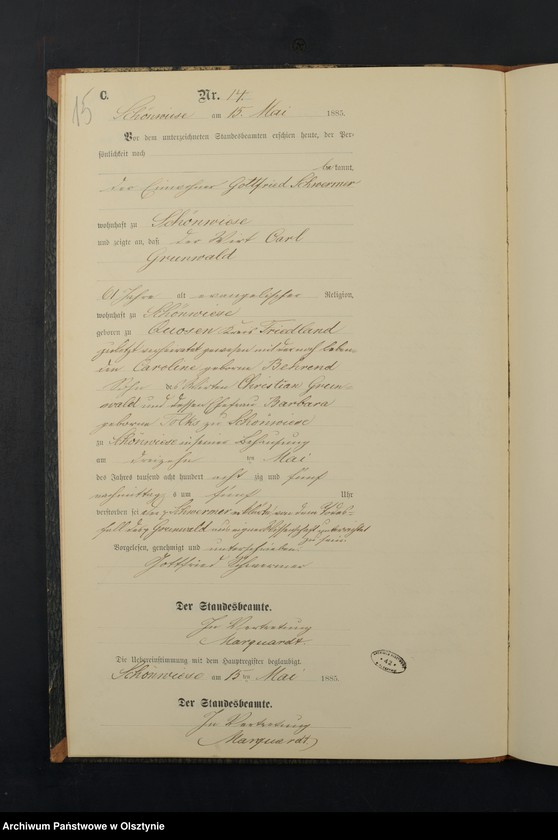 15
C. Nr. 14.
Schönwiese am 15. Mai 1885.
Vor dem unterzeichneten Standesbeamten erschien heute, der Per-
sönlichkeit nach
be kannt,
der Einwohner Gottfried Schwermer
wohnhaft zu Schönwiese
und zeigte an, daß der Wirt Carl
Grunwald
61 Jahre alt evangelischer Religion,
wohnhaft zu Schönwiese
geboren zu Quosen Kreis Friedland
zuletzt verheiratet gewesen mit der noch leben-
den Caroline geborne Behrend
Sohn des Christian Grun-
wald und dessen Ehefrau Barbara
geborne Folks zu Schönwiese
zu Schönwiese in seiner Behausung
am dreizehn ten Mai
des Jahres tausend acht hundert acht zig und fünf
nachmittags um fünf Uhr
verstorben sei. Schwermer erklärte von dem Todes-
fall des Grunwald aus eigener Wissenschaft unterrichtet
zu sein.
Vorgelesen, genehmigt und unterschrieben.
Gottfried Schwermer
Der Standesbeamte.
In Vertretung
Marquardt.
Die Uebereinstimmung mit dem Hauptregister beglaubigt.
Schönwiese am 15 ten Mai 1885.
Der Standesbeamte.
In Vertretung
Marquardt
Archiwum Państwowe w Olsztynie